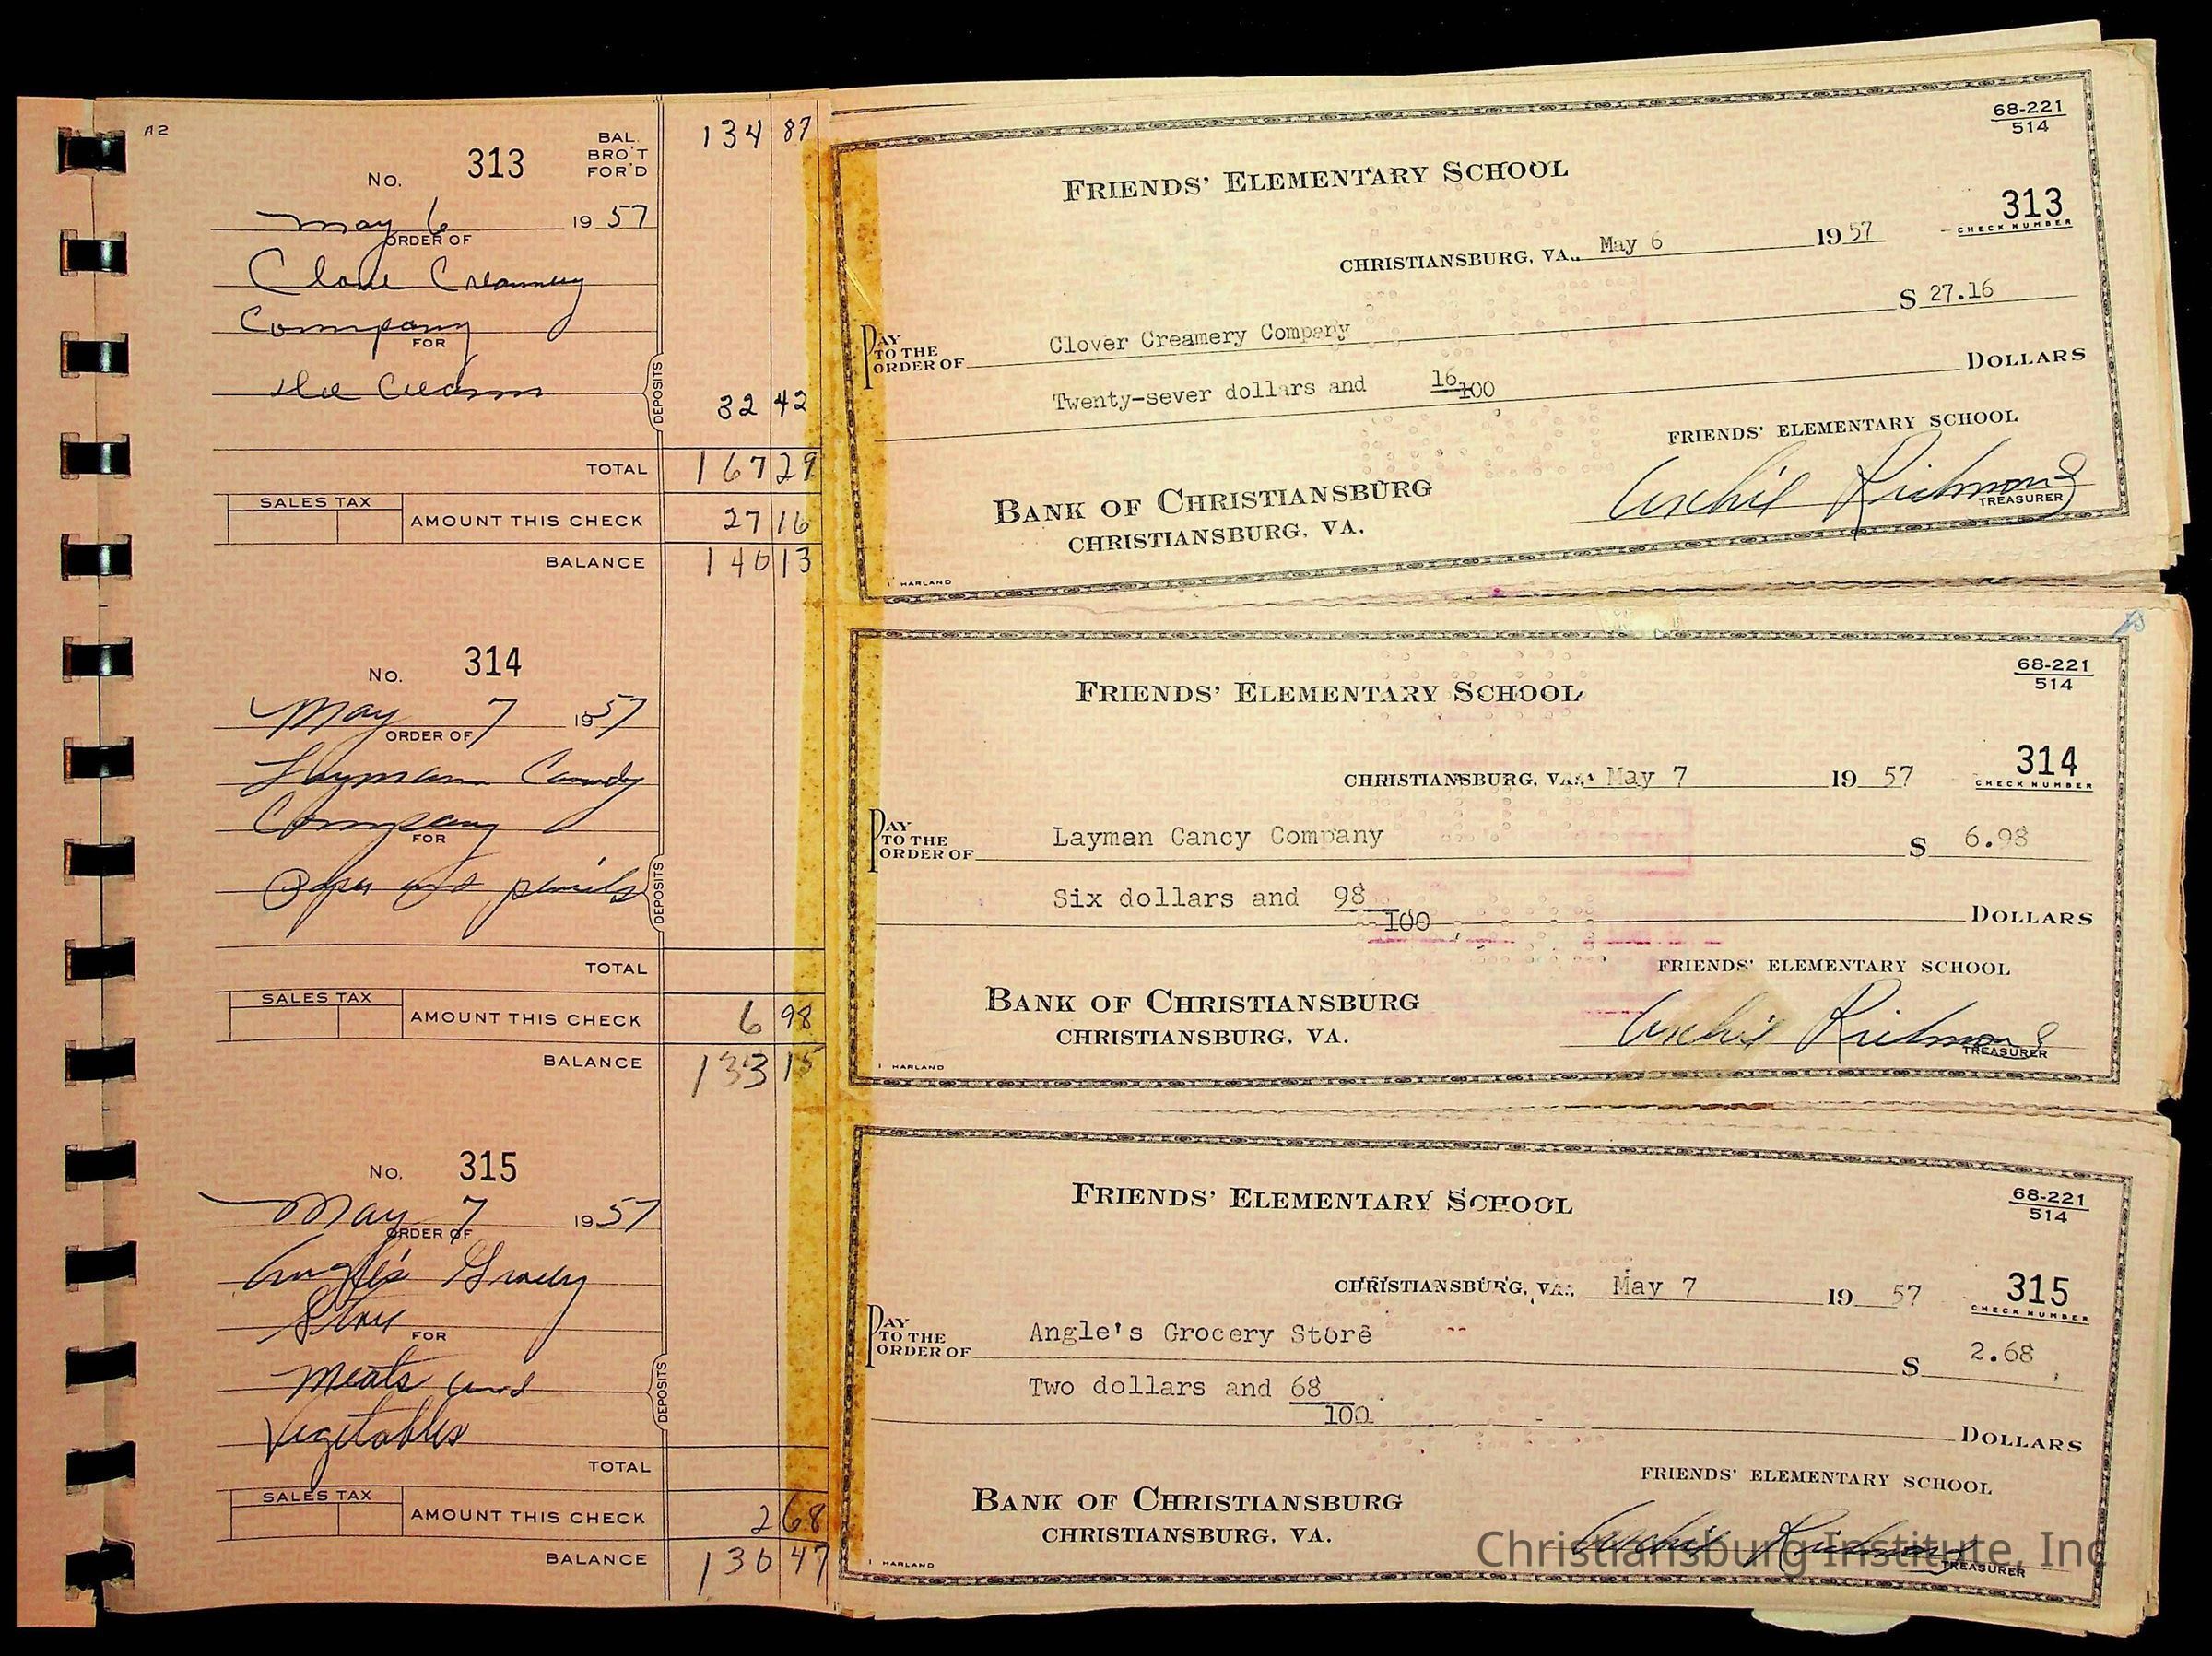 A2
BAL.
BRO'T
FOR'D
134 87
No. 313
May 6 19 57
ORDER OF
Clover Creamery
Company
FOR
Ice Cream
DEPOSITS
32 42
TOTAL 167 29
SALES TAX
AMOUNT THIS CHECK 27 16
BALANCE 140 13
No. 314
May 7 19 57
ORDER OF
Layman Candy
Company
FOR
Paper and pencils
DEPOSITS
TOTAL
SALES TAX
AMOUNT THIS CHECK 6 98
BALANCE 133 15
No. 315
May 7 19 57
ORDER OF
Angle's Grocery
Store
FOR
Meats and
Vegetables
DEPOSITS
TOTAL
SALES TAX
AMOUNT THIS CHECK 2 68
BALANCE 130 47
68-221
514
FRIENDS' ELEMENTARY SCHOOL
313
CHECK NUMBER
CHRISTIANSBURG, VA., May 6 19 57
$ 27.16
PAY
TO THE
ORDER OF Clover Creamery Company
Twenty-sever dollars and 16/100 DOLLARS
FRIENDS' ELEMENTARY SCHOOL
BANK OF CHRISTIANSBURG
CHRISTIANSBURG, VA.
Archie Richmond
TREASURER
HARLAND
68-221
514
FRIENDS' ELEMENTARY SCHOOL
314
CHECK NUMBER
CHRISTIANSBURG, VA., May 7 19 57
PAY
TO THE
ORDER OF Layman Cancy Company $ 6.98
Six dollars and 98/100 DOLLARS
FRIENDS' ELEMENTARY SCHOOL
BANK OF CHRISTIANSBURG
CHRISTIANSBURG, VA.
Archie Richmond
TREASURER
HARLAND
68-221
514
FRIENDS' ELEMENTARY SCHOOL
315
CHECK NUMBER
CHRISTIANSBURG, VA., May 7 19 57
PAY
TO THE
ORDER OF Angle's Grocery Store $ 2.68
Two dollars and 68/100
DOLLARS
FRIENDS' ELEMENTARY SCHOOL
BANK OF CHRISTIANSBURG
CHRISTIANSBURG, VA.
Archie Richmond
TREASURER
HARLAND
Christiansburg Institute, Inc